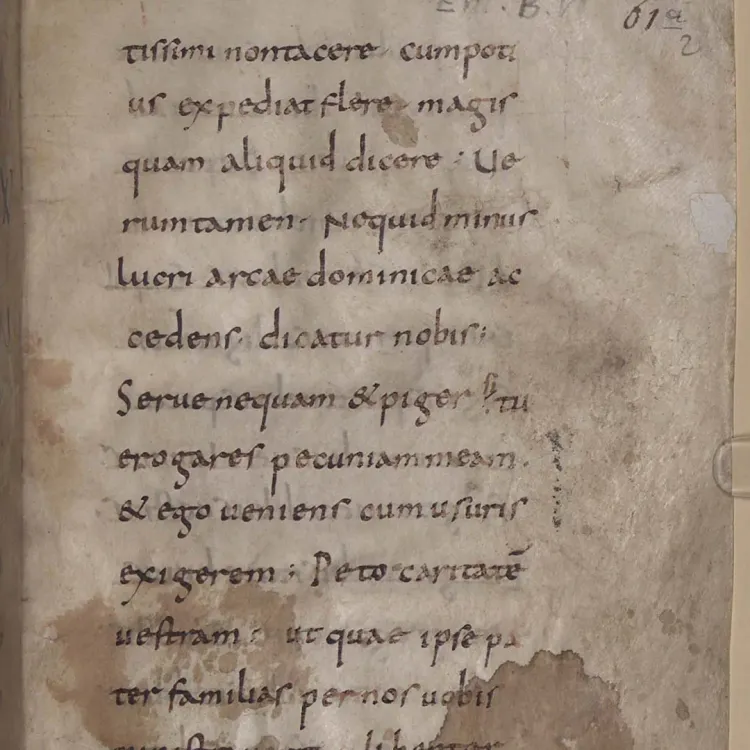 61a
2
tissimi nontacere cumpoti
us expediat flere magis
quam aliquid dicere : Ue
rumtamen · Nequid minus
lucri arcae dominicae ac
cedens · dicatur nobis :
Serue nequam & piger si tu
erogares pecuniam meam ·
& ego ueniens cum usuris
exigerem : Peto caritatē
uestram : ut quae ipse pa
ter familias per nos uobis